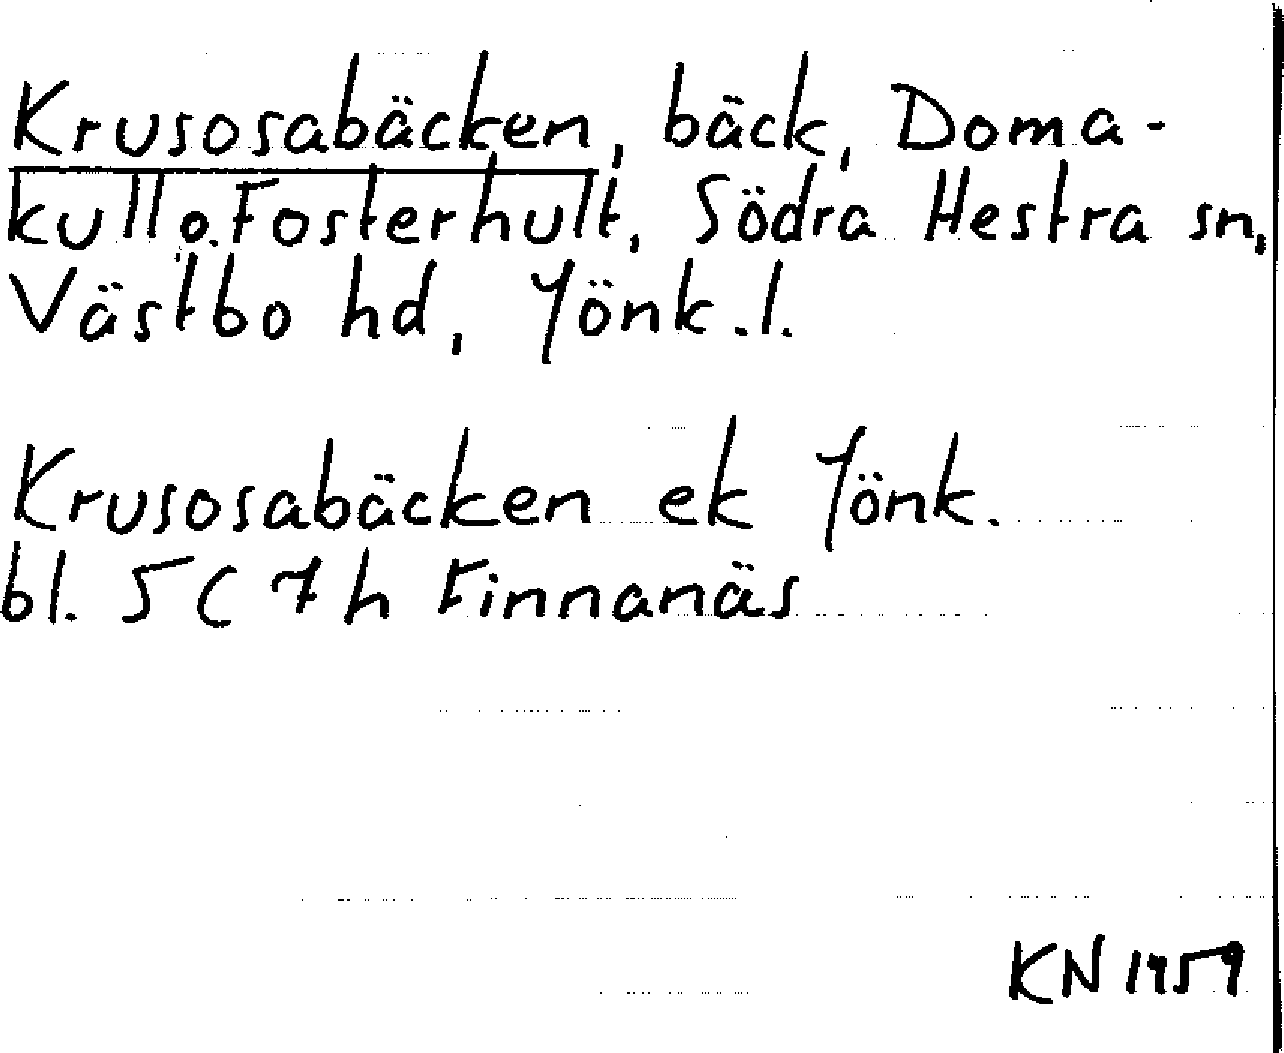 Krusosabäcken, bäck, Doma-
kull o. Fosterhult, Södra Hestra sn,
Västbo hd, Jönk.l.
Krusosabäcken ek Jönk.
bl. 5C 7h Finnanäs
KN 1959